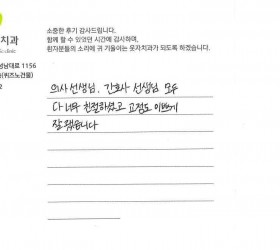 소중한 후기 감사드립니다.
함께 할 수 있었던 시간에 감사하며,
환자분들의 소리에 귀 기울이는 웃자치과가 되도록 하겠습니다.
치과
성남대로 1156
(퀴즈노건물)
2
의사 선생님, 간호사 선생님 모두
다 너무 친절하셨고 교정도 이쁘게
잘 됐습니다